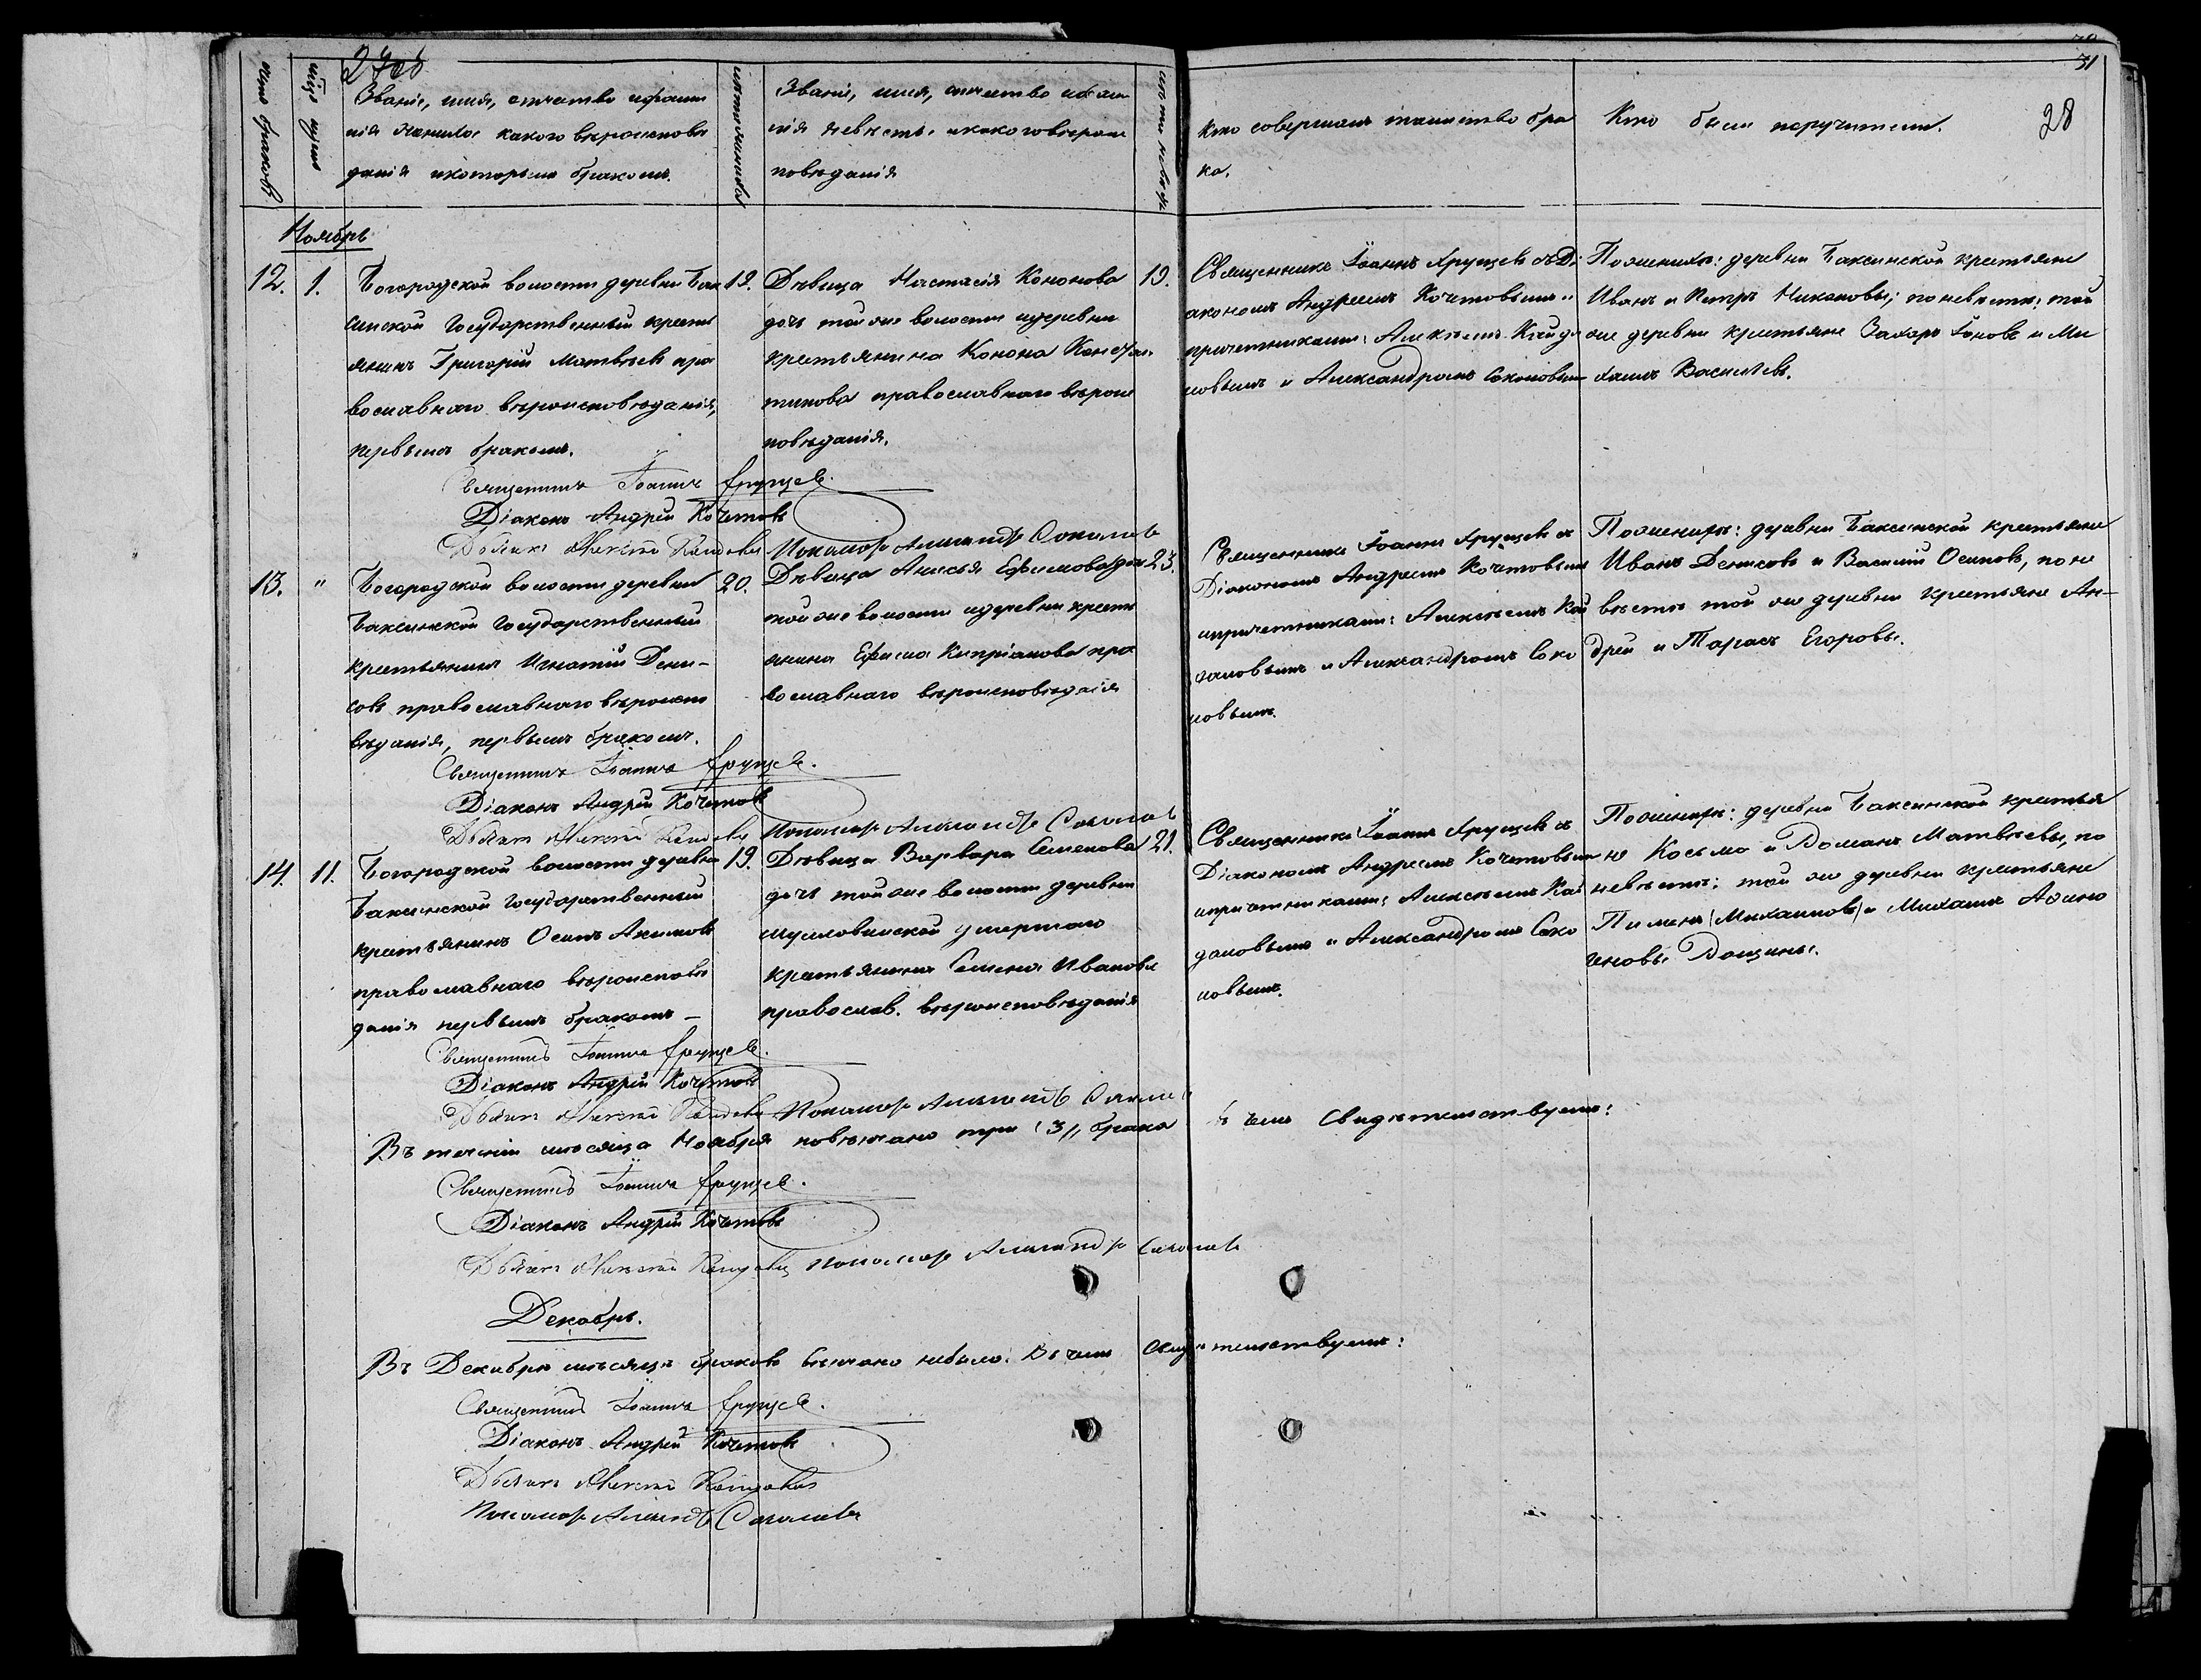 31
28
Счетъ браковъ
Мѣсяцъ и число
Званіе, имя, отчество и фами
лія жениха, какого вѣроисповѣ
данія и которымъ бракомъ.
лѣта жениховъ
Званіе, имя, отчество и фами
лія невѣсты и какого вѣроис
повѣданія
лѣта невѣстъ
Кто совершилъ таинство бра
ка.
Кто были поручители.
Ноябрь
12. 1.
Богородской волости деревни Бак
синской Государственный кресть
янинъ Григорій Матвѣевъ пра
вославнаго вѣроисповѣданія,
первымъ бракомъ.
19.
Дѣвица Настасія Кононова
дочь той же волости и деревни
крестьянина Конона Констан
тинова православнаго вѣроис
повѣданія.
19.
Священникъ Іоаннъ Хрущевъ съ Ді
акономъ Андреемъ Кочетовымъ и
причетниками: Алексѣемъ Кайда
ловымъ и Александромъ Соколовымъ
По женихѣ: деревни Баксинской крестьяне
Иванъ и Петръ Никоновы; по невѣстѣ: той
же деревни крестьяне Захаръ Іоновъ и Ми
хаилъ Васильевъ.
Священникъ Іоаннъ Хрущевъ.
Діаконъ Андрей Кочетовъ
Дьячекъ Алексѣй Кайдаловъ Пономарь Александръ Соколовъ
13. "
Богородской волости деревни
Баксинской Государственный
крестьянинъ Игнатій Дени-
совъ православнаго вѣроиспо
вѣданія, первымъ бракомъ.
20.
Дѣвица Анисья Ефимова дочь
той же волости и деревни кресть
янина Ефима Кипріанова пра
вославнаго вѣроисповѣданія
23.
Священникъ Іоаннъ Хрущевъ съ
Діакономъ Андреемъ Кочетовымъ
и причетниками: Алексѣемъ Кай
даловымъ и Александромъ Соко
ловымъ.
По женихѣ: деревни Баксинской крестьяне
Иванъ Денисовъ и Василій Осиповъ, по не
вѣстѣ той же деревни крестьяне Ан-
дрей и Тарасъ Егоровы.
Священникъ Іоаннъ Хрущевъ.
Діаконъ Андрей Кочетовъ
Дьячекъ Алексѣй Кайдаловъ Пономарь Александръ Соколовъ
14. 11.
Богородской волости деревни
Баксинской Государственный
крестьянинъ Осипъ Акимовъ
православнаго вѣроисповѣ
данія первымъ бракомъ –
19.
Дѣвица Варвара Семенова
дочь той же волости деревни
умершаго
крестьянина Семена Иванова
православ. вѣроисповѣданія
21.
Священникъ Іоаннъ Хрущевъ съ
Діакономъ Андреемъ Кочетовымъ
и причетниками: Алексѣемъ Кай
даловымъ и Александромъ Соко
ловымъ.
По женихѣ: деревни Баксинской крестья
не Косьма и Романъ Матвѣевы, по
невѣстѣ: той же деревни крестьяне
Пименъ (Михаиловъ) и Михаилъ
Священникъ Іоаннъ Хрущевъ.
Діаконъ Андрей Кочетовъ
Дьячекъ Алексѣй Кайдаловъ Пономарь Александръ Соколовъ
Въ теченіи мѣсяца Ноября повѣнчано три (3) брака въ чемъ Свидѣтельствуемъ:
Священникъ Іоаннъ Хрущевъ.
Діаконъ Андрей Кочетовъ
Дьячекъ Алексѣй Кайдаловъ Пономарь Александръ Соколовъ
Декабрь.
Въ Декабрѣ мѣсяцѣ браковъ вѣнчано небыло. Въ чемъ Свидѣтельствуемъ:
Священникъ Іоаннъ Хрущевъ.
Діаконъ Андрей Кочетовъ
Дьячекъ Алексѣй Кайдаловъ
Пономарь Александръ Соколовъ